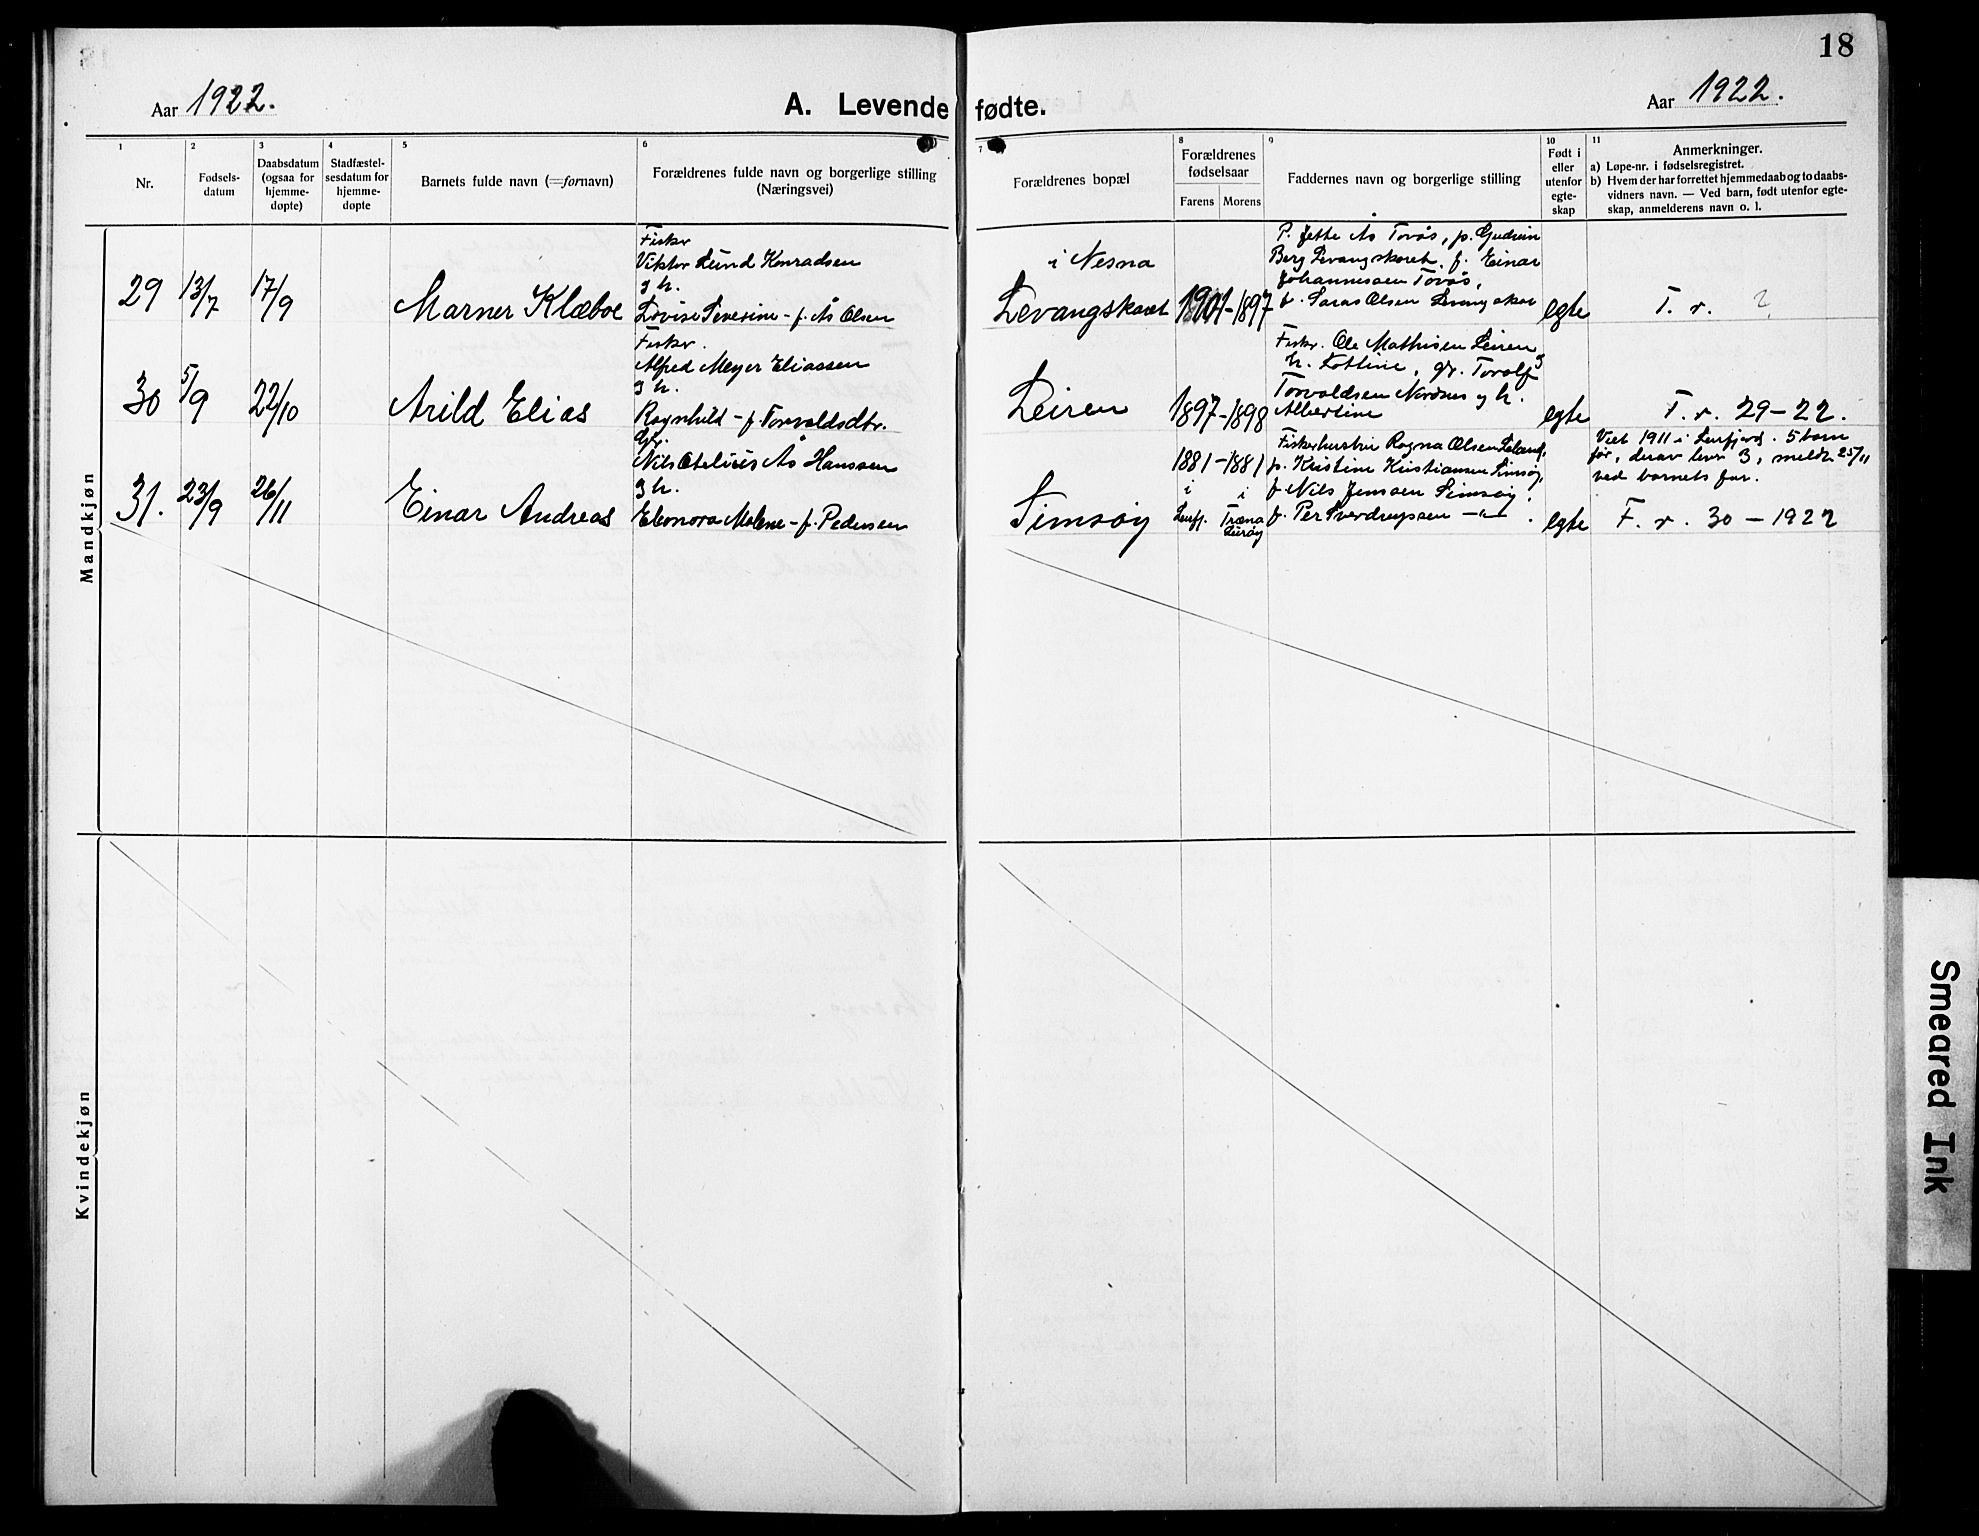 18
Aar 1922.
A. Levende fødte.
Aar 1922.
1
2
3
4
5
6
7
8
9
10
11
Nr.
Fødsels-
datum
Daabsdatum
(ogsaa for
hjemme-
døpte)
Stadfæstel-
sesdatum for
hjemme-
døpte
Barnets fulde navn (=fornavn)
Forældrenes fulde navn og borgerlige stilling
(Næringsvei)
Forældrenes bopæl
Forældrenes
fødselsaar
Farens
Morens
Faddernes navn og borgerlige stilling
Født i
eller
utenfor
egte-
skap
Anmerkninger.
a) Løpe-nr. i fødselsregistret.
b) Hvem der har forrettet hjemmedaab og to daabs-
vidners navn. — Ved barn, født utenfor egte-
skap, anmelderens navn o. l.
Mandkjøn
29
13/7
17/9
Marner Klæboe
Fisker
Viktor Lund Konradsen
g h.
Lovise Severine - f. Ås Olsen
i Nesna
Levangskoret
1901-1897
P. Jette As Tovås, p. Gudrun
Berg Levangskoret, f. Einar
Johannessen Tovås,
f. Saras Olsen
egte
F. r. ?
30
5/9
22/10
Arild Elias
Fisker.
Alfred Meyer Eliassen
g h.
Ragnhild - f. Torvaldsdtr.
Leiren
1897-1898
Fisker. Ole Mathisen Leiren
h. , gr. Torolf
Torvaldsen Nordnes og h.
Albertine
egte
F. r. 29-22.
31.
23/9
26/11
Einar Andreas
Gr.
Nils Ås Hanssen
g h.
Eleonora Malene - f. Pedersen
Simsøy
1881-1881
i i
Leirfj. Træna
Lurøy
Fiskerhustru Ragna Olsen Leland,
p. Kristine Kristiansen Simsøy,
f. Nils Jensen Simsøy,
f. Per Sverdrupsen -"- .
egte
Viet 1911 i Leirfjord. 5 barn
før, derav lever 3, meldt 25/11
ved barnets far.
F. r. 30 - 1922
Kvindekjøn
Smeared Ink